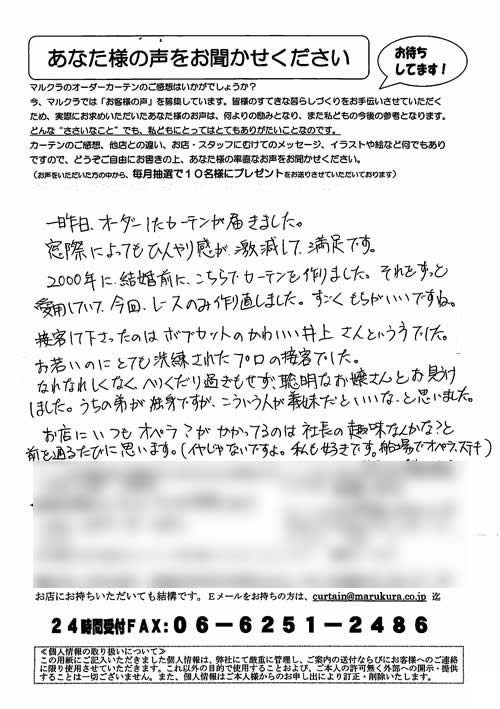 あなた様の声をお聞かせください
お待ち
してます！
マルクラのオーダーカーテンのご感想はいかがでしょうか？
今、マルクラでは「お客様の声」を募集しています。皆様のすてきな暮らしづくりをお手伝いさせていただく
ため、実際にお求めいただいたあなた様のお声は、何よりの励みとなり、また私どもの今後の参考となります。
どんな“ささいなこと”でも、私どもにとってはとてもありがたいことなのです。
カーテンのご感想、他店との違い、お店・スタッフにむけてのメッセージ、イラストや絵など何でもあり
ですので、どうぞご自由にお書きの上、あなた様の率直なお声をお聞かせください。
（お声をいただいた方の中から、毎月抽選で１０名様にプレゼントをお送りさせていただいております）
一昨日、オーダーしたカーテンが届きました。
窓際によってもひんやり感が、激減して、満足です。
2000年に、結婚前に、こちらでカーテンを作りました。それをずっと
愛用していて、今回、レースのみ作り直しました。すごくもちがいいですね。
接客して下さったのはボブカットのかわいい井上さんというでした。
お若いのにとても洗練されたプロの接客でした。
なれなれしくなく、へりくだり過ぎもせず、聡明なお嬢さんとお見受け
しました。うちの弟が独身ですが、こういう人が義妹だといいな、と思いました。
お店にいつもオペラ？がかかってるのは社長の趣味なんかな？と
前を通るたびに思います。（イヤじゃないですよ。私も好きです。船場でオペラ、ステキ）
お店にお持ちいただいても結構です。Ｅメールをお持ちの方は、curtain@marukura.co.jp 迄
２４時間受付FAX：０６－６２５１－２４８６
≪個人情報の取り扱いについて≫
この用紙にご記入いただきました個人情報は、弊社にて厳重に管理し、ご案内の送付ならびにお客様へのご連絡
に限り使用させていただきます。これ以外の目的で使用することおよび、ご本人の許可無く外部への開示・提供
することは一切ございません。また、個人情報はご本人様からのお申し出により訂正・削除いたします。